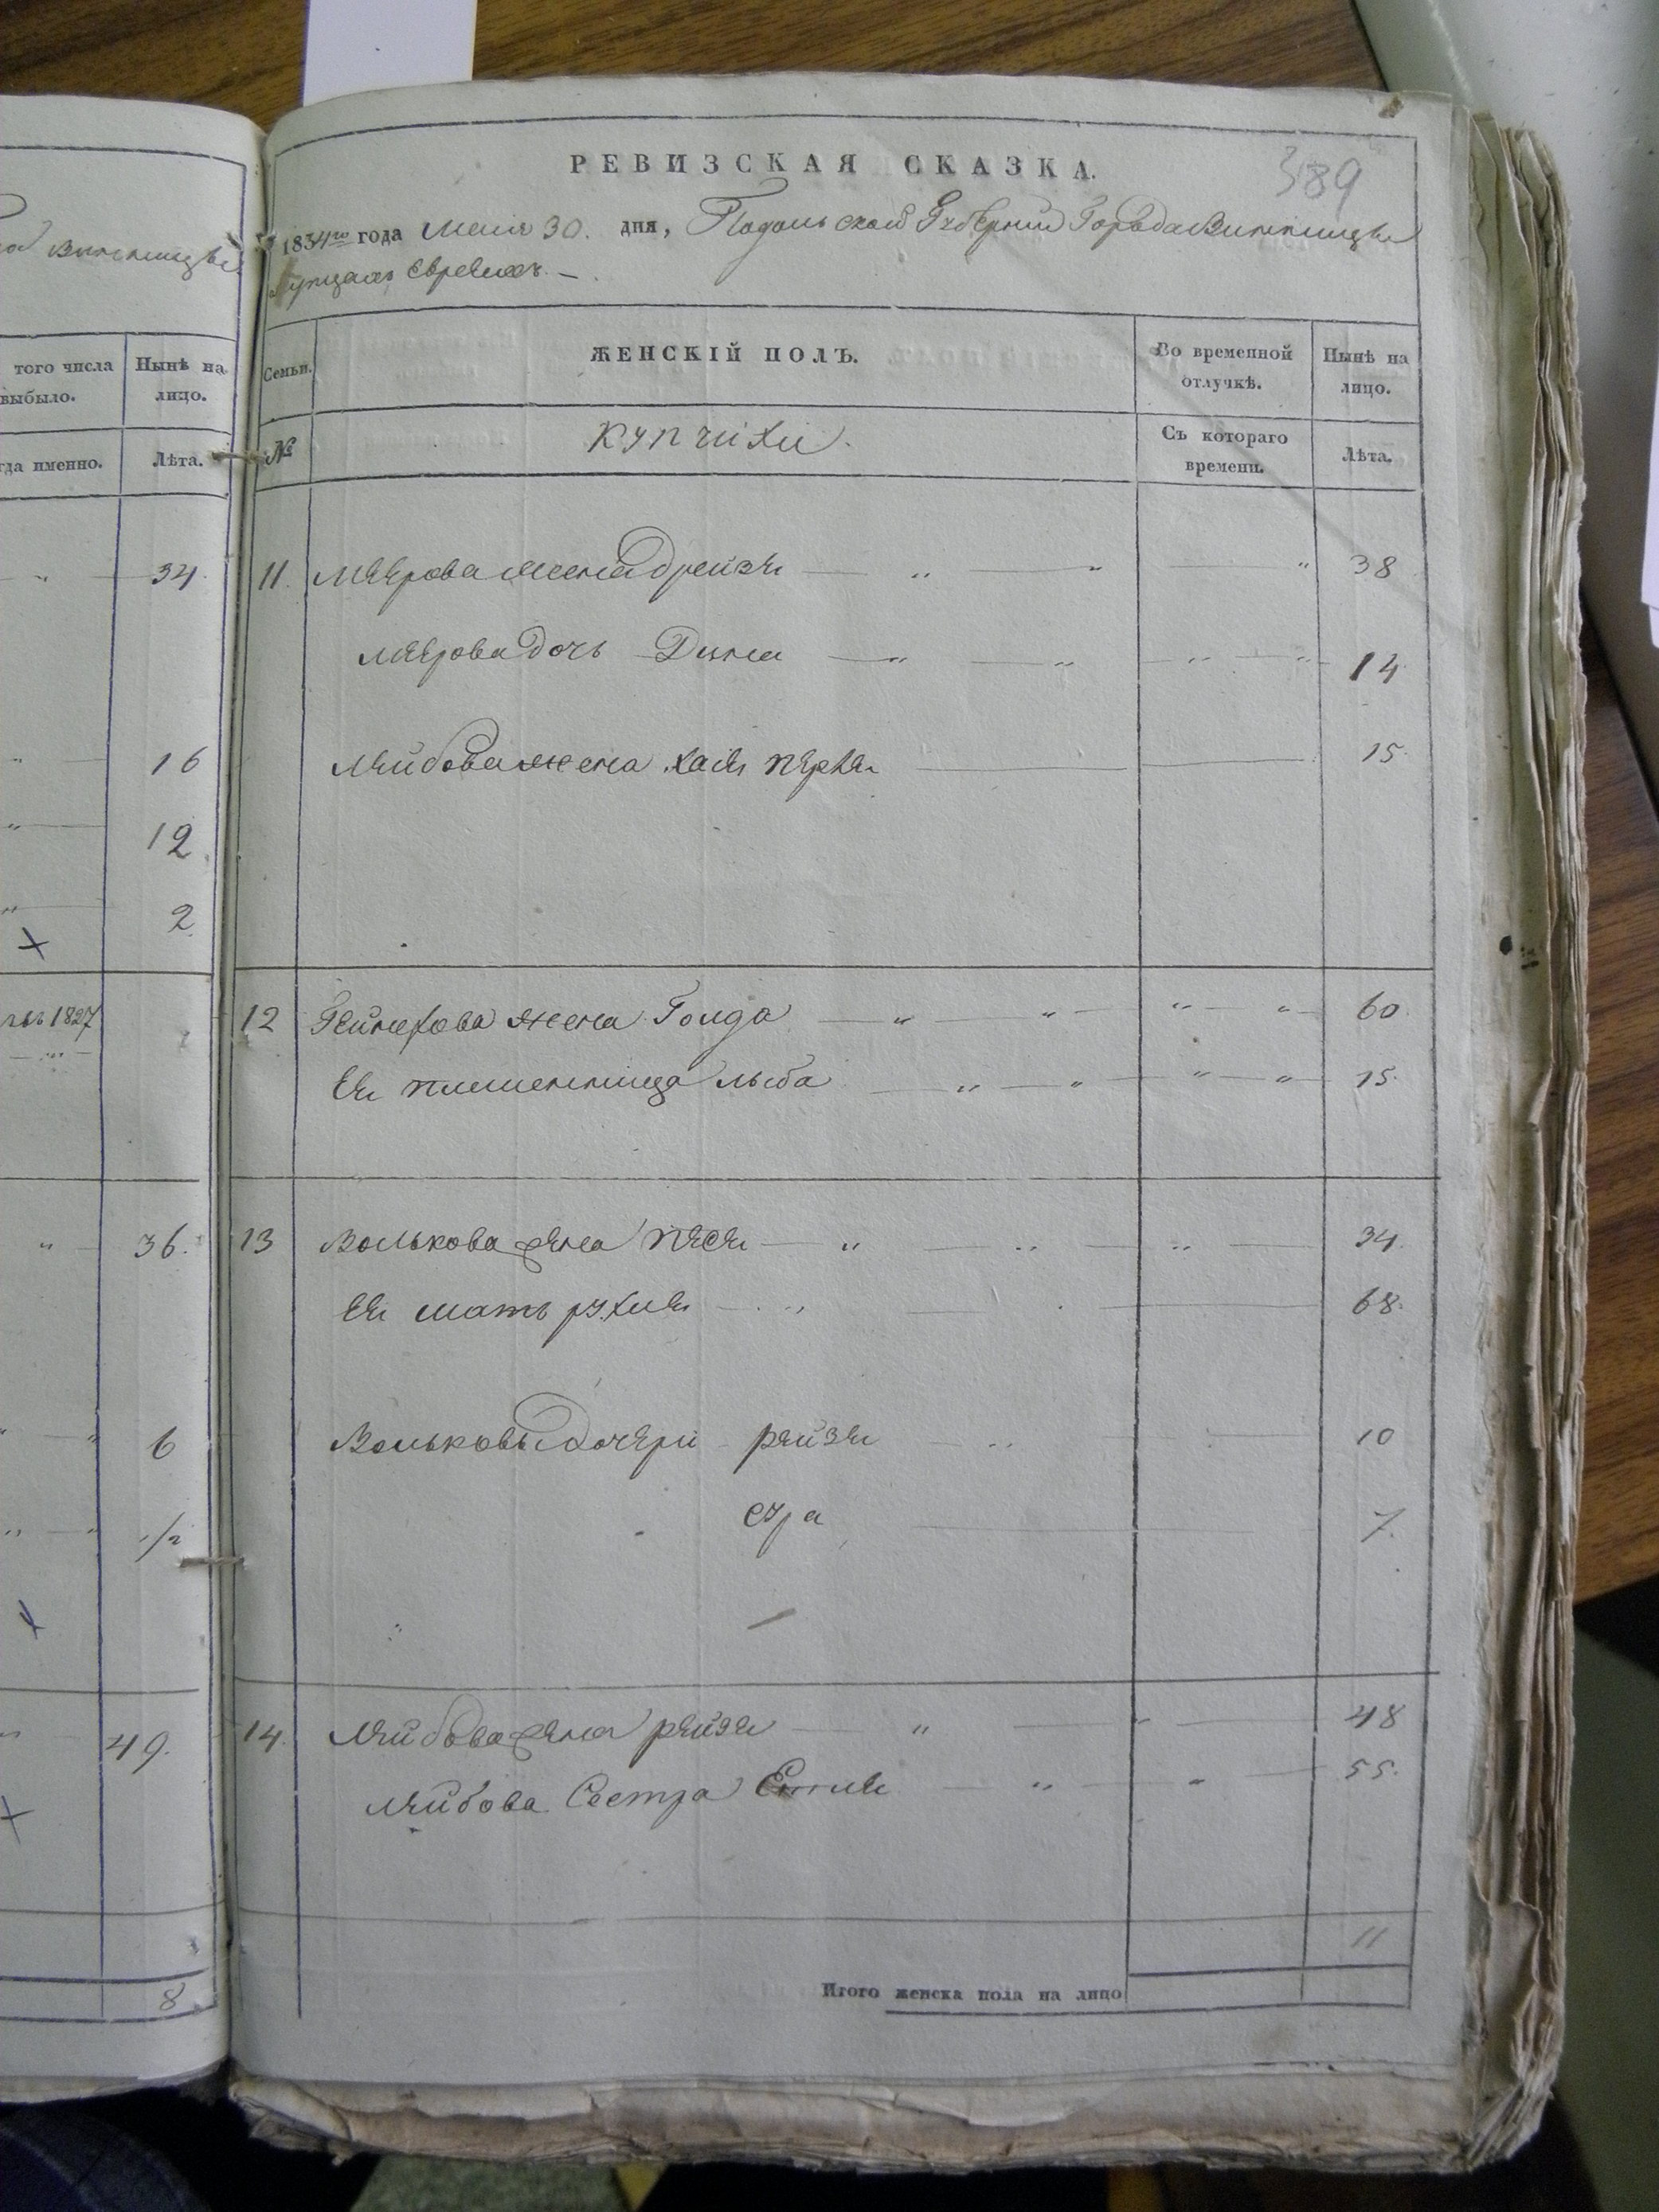 389
РЕВИЗСКАЯ СКАЗКА.
1834го года Мая 30. дня, Подольской Губерніи Города Винницы
Евреяхъ. —
Винницы
того числа выбыло.
Нынѣ на лицо.
Семьи.
ЖЕНСКІЙ ПОЛЪ.
Во временной отлучкѣ.
Нынѣ на лицо.
именно.
Лѣта.
№
купчихи.
Съ котораго времени.
Лѣта.
34. 11. Меерова жена Дрейзя 38
Меерова дочь Дына 14
16 Лейбова жена Хая перля 15.
12
2.
1827 12 Жена Голда 60
Ея племенница лыба 15.
36. 13 Волькова жена песя 34.
Ея мать рухля 68.
6 Вольковы дочери рейзя 10
1/2 сура 7.
49. 14. Лейбова жена рейзя 48
Лейбова Сестра 55.
11
8
Итого женска пола на лицо